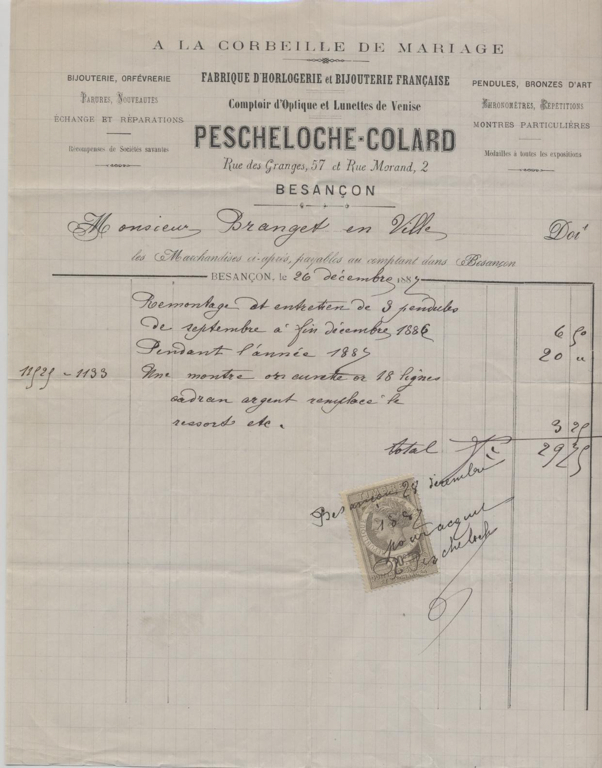 A LA CORBEILLE DE MARIAGE
BIJOUTERIE, ORFÉVRERIE
PARURES, NOUVEAUTÉS
ÉCHANGE ET RÉPARATIONS
Récompenses de Sociétés savantes
FABRIQUE D'HORLOGERIE et BIJOUTERIE FRANÇAISE
Comptoir d'Optique et Lunettes de Venise
PESCHELOCHE-COLARD
Rue des Granges, 57 et Rue Morand, 2
BESANÇON
PENDULES, BRONZES D'ART
CHRONOMÈTRES, RÉPÉTITIONS
MONTRES PARTICULIÈRES
Médailles à toutes les expositions
Monsieur Branget en Ville Doit
les Marchandises ci-après, payables au comptant dans Besançon
BESANÇON, le 26 décembre 1887
Remontage et entretien de 3 pendules
de septembre à fin décembre 1886 6 50
Pendant l'année 1887 20 "
11525 - 1133 Une montre or cuvette or 18 lignes
cadran argent remplacé le
ressort etc. 3 25
total 29 75
Besançon 28 décembre
1887
pour acquit
Pescheloche